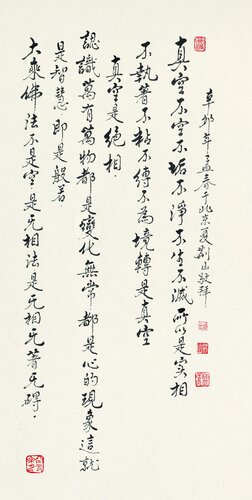 真空不空不垢不淨不生不滅所以是实相
不執著不粘不缚不為境轉是真空
真空是绝相
認識萬有萬物都是變化無常都是心的現象這就
是智慧即是般若
大乘佛法不是空是无相法是无相无著无碍
辛卯年孟春于北京夏荆山敬拜